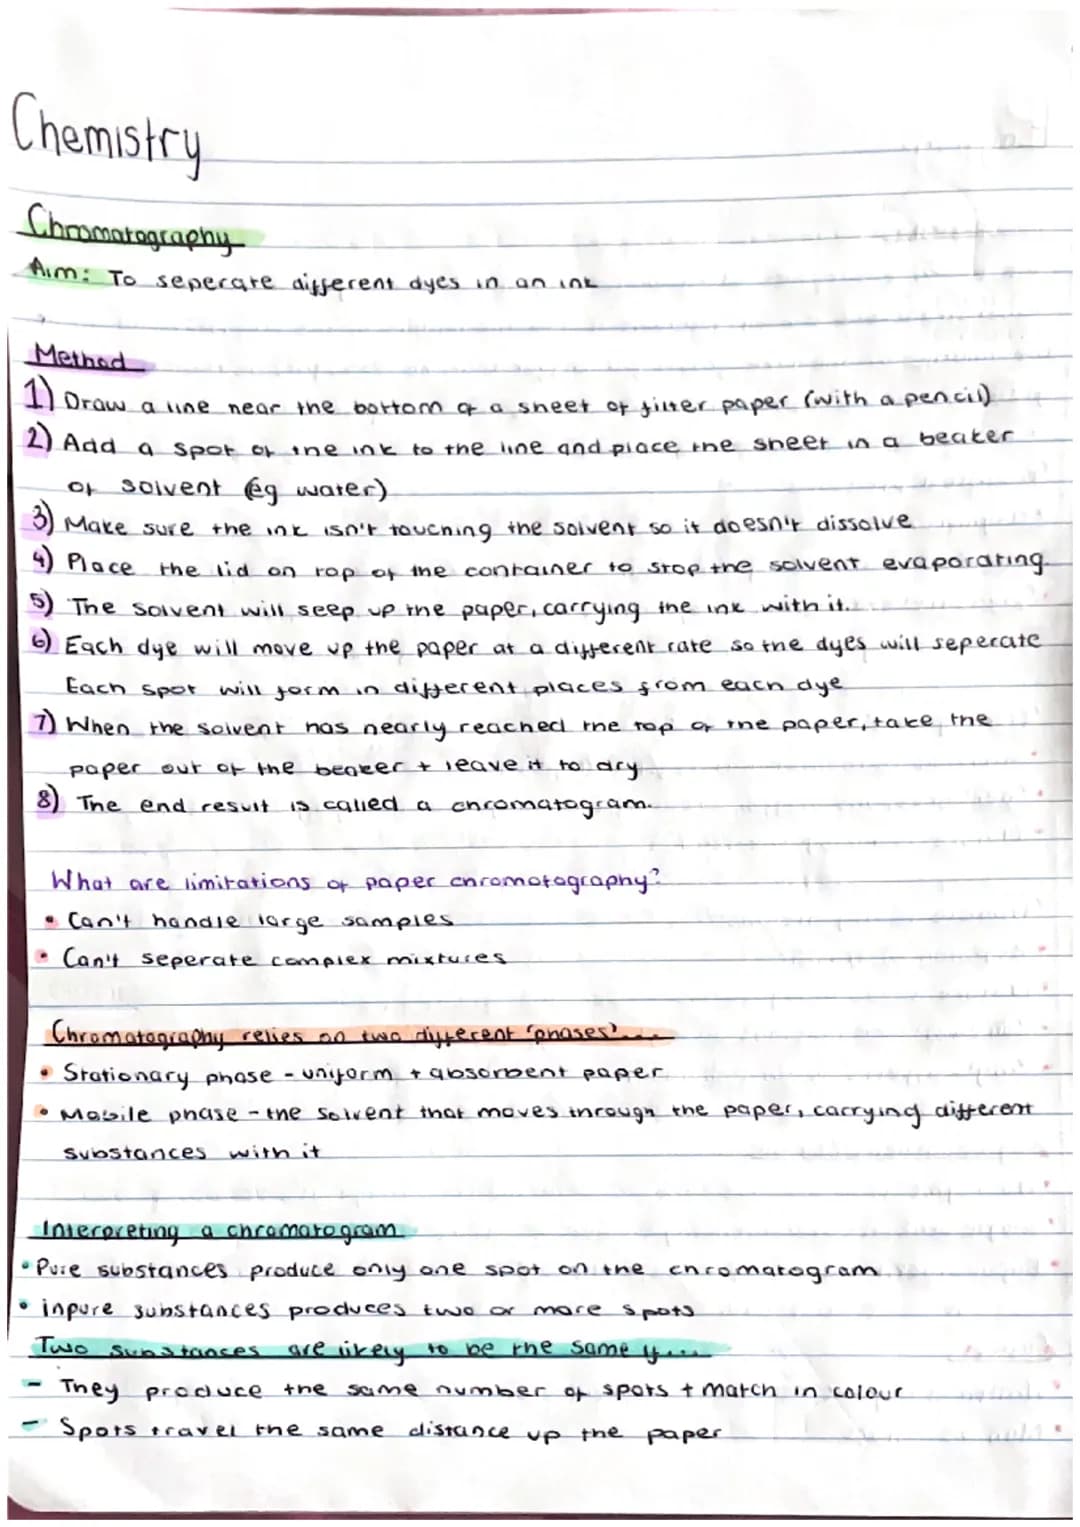 Chemistry
Chromatography
Aim: To seperate different dyes in an ink
Method
1) Draw a line near the bottom of a sheet of filter paper (with a pencil)
2) Add a spot of the ink to the line and place the sheet in a beaker
of solvent (eg water)
3) Make sure the ink isn't touching the solvent so it doesn't dissolve
4) Place the lid on top of the container to stop the solvent evaporating.
5) The solvent will seep up the paper, carrying the ink with it.
6) Each dye will move up the paper at a different rate so the dyes will seperate
Each spot will form in different places from each dye
7) When the solvent has nearly reached the top of the paper, take the
paper out of the beaker + leave it to dry
8) The end result is called a chromatogram.
What are limitations of paper chromotography?
• Can't handle large samples
• Can't seperate complex mixtures
Chromatography relies on two different 'phases'...
• Stationary phase - uniform + absorbent paper
• Mobile phase - the solvent that moves through the paper, carrying different
substances with it
Interpreting a chromatogram
• Pure substances produce only one spot on the chromatogram
• inpure substances produces two or more spots
Two substances are likely to be the same if...
- They produce the same number of spots + match in colour
- Spots travel the same distance up the paper